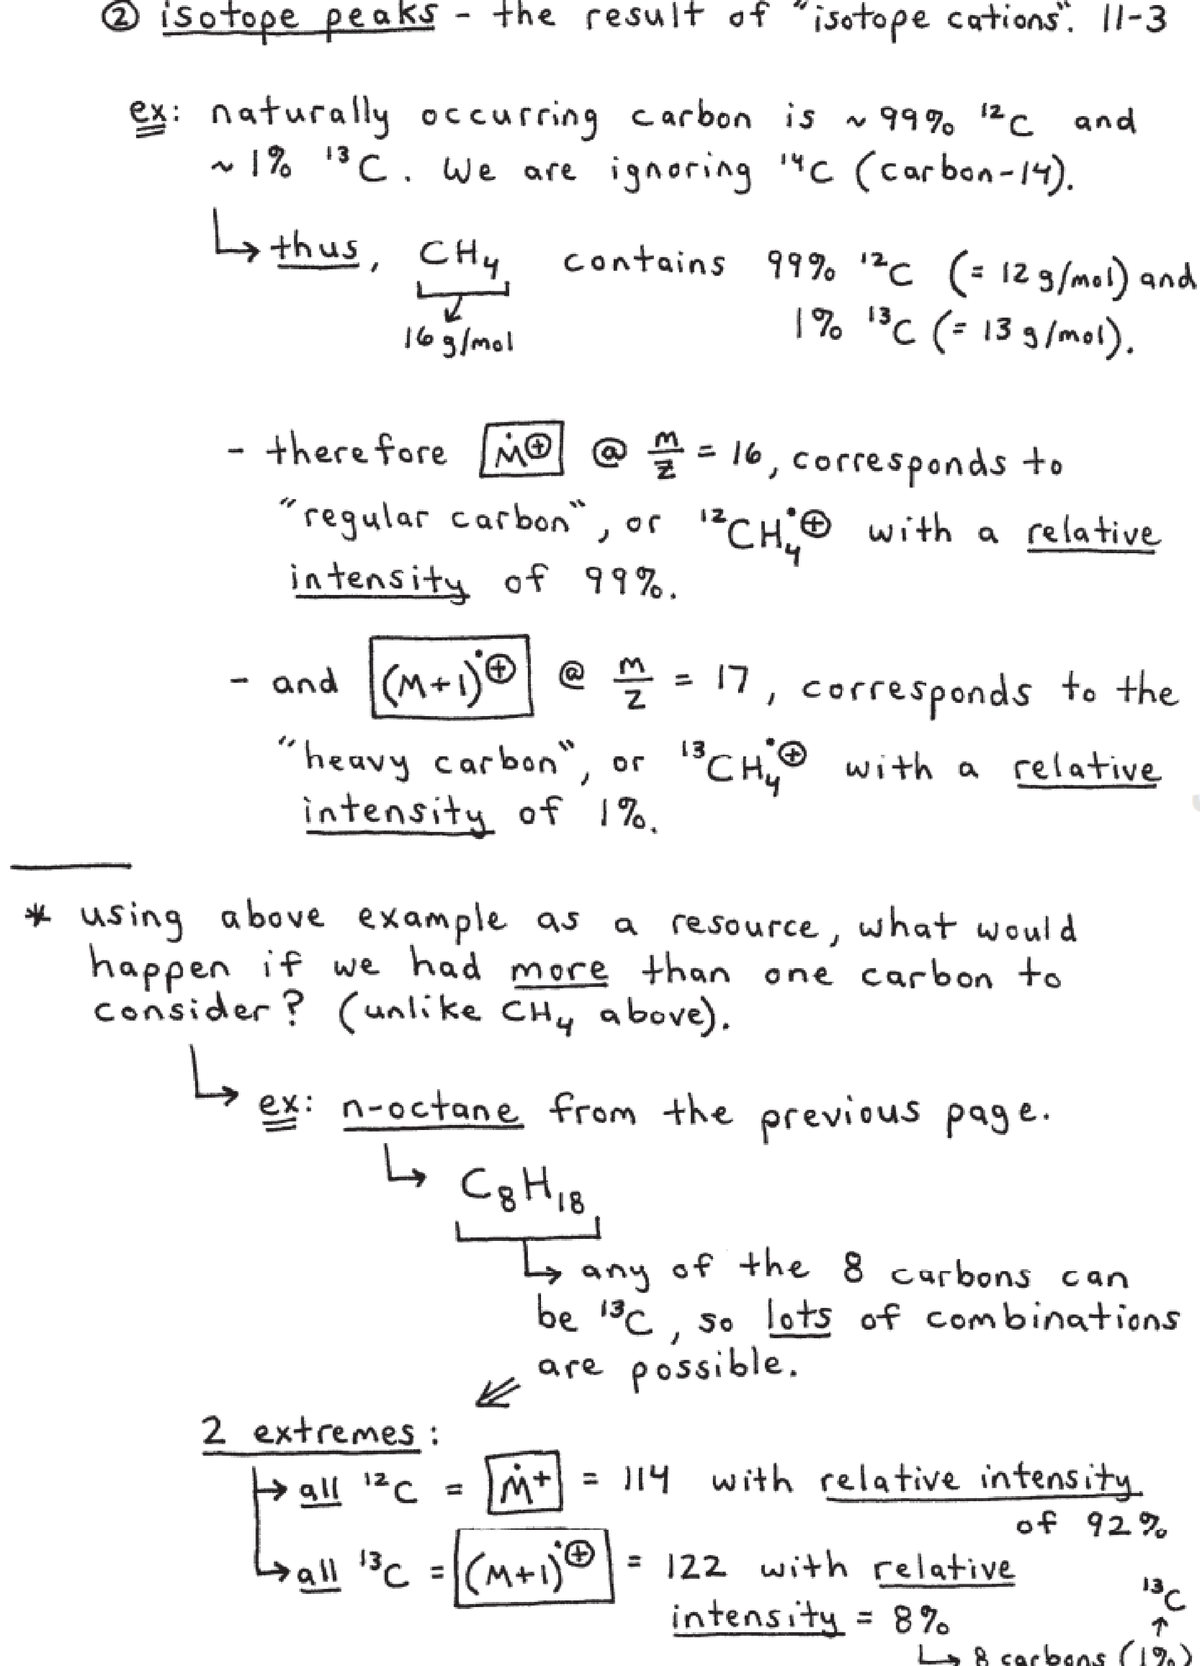 ② isotope peaks - the result of "isotope cations". 11-3
ex: naturally occurring carbon is ~ 99% ¹²C and
~ 1% ¹³C. We are ignoring ¹⁴C (carbon-14).
↳ thus, CH₄ contains 99% ¹²C (= 12 g/mol) and
16 g/mol 1% ¹³C (= 13 g/mol).
- therefore Ṁ⊕ @ m/z = 16, corresponds to
"regular carbon", or ¹²CH₄·⊕ with a relative
intensity of 99%.
- and (M+1)·⊕ @ m/z = 17, corresponds to the
"heavy carbon", or ¹³CH₄·⊕ with a relative
intensity of 1%.
* using above example as a resource, what would
happen if we had more than one carbon to
consider? (unlike CH₄ above).
↳ ex: n-octane from the previous page.
↳ C₈H₁₈
↳ any of the 8 carbons can
be ¹³C, so lots of combinations
are possible.
2 extremes:
↳ all ¹²C = Ṁ+ = 114 with relative intensity
of 92%
↳ all ¹³C = (M+1)·⊕ = 122 with relative
intensity = 8%
¹³C
↑
↳ 8 carbons (1%)